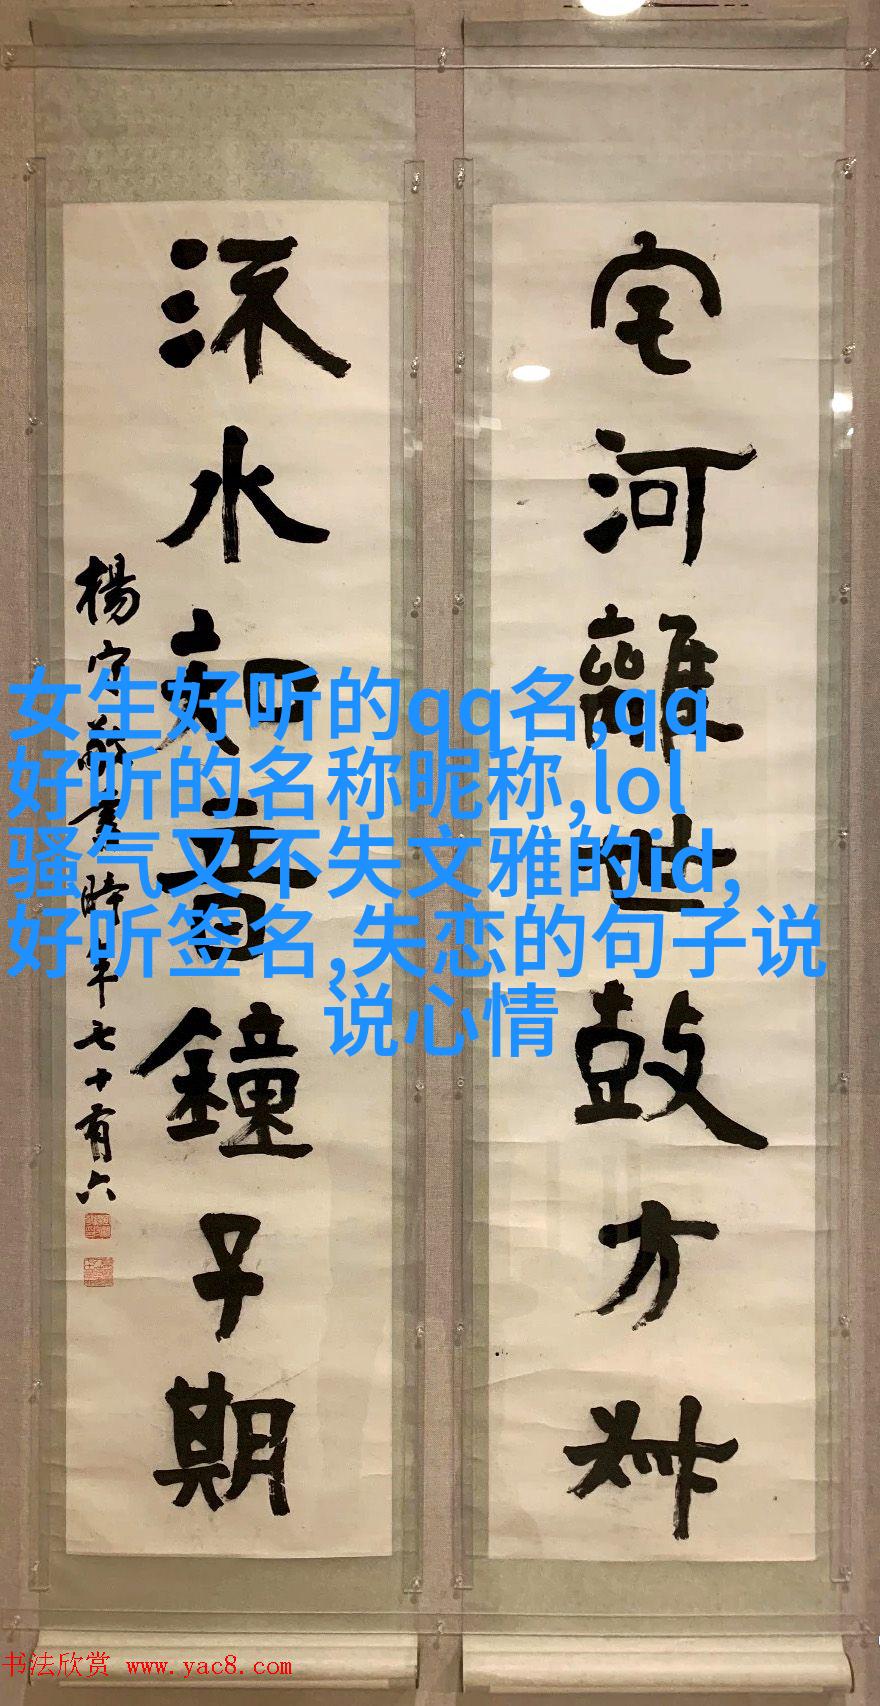 宅河離世鼓方叔
流水知音鐘子期
楊守敬書時年七十有六
女生好听的qq名,qq
好听的名称昵称,lol
骚气又不失文雅的id,
好听签名,失恋的句子说
说心情
书法欣赏 www.yac8.com